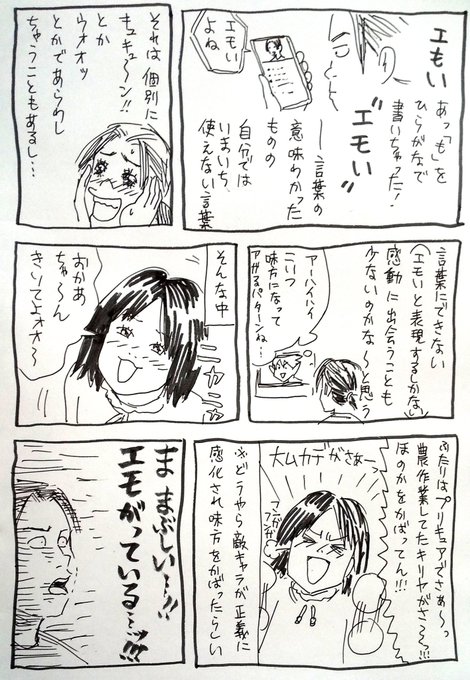 エもい
あっ「も」を
ひらがなで
書いちゃった!
“エモい”
エもい
よね
——言葉の
意味わかった
ものの
自分では
いまいち、
使えない言葉
それは個別に
キュキュ〜ン!!
とか
ウオオッ
とかであらわし
ちゃうこともあるし…
言葉にできない
(エモいと表現するしかない)
感動に出会うことも
少ないのかな〜と思う
アーハイハイ
こいつ
味方になって
アガるパターンね…
そんな中
おかあ
ちゃ〜ん
きいてよォオ〜
ふたりはプリキュアでさぁ〜っ
農作業してたキリヤがさ〜っ!!
ほのかをかばってん!!!
大ムカデがさぁーっ
フンガ
フンガ
※どうやら敵キャラが正義に
感化され味方をかばったらしい
ま まぶしい…!!
エモがっている…ッ!!!